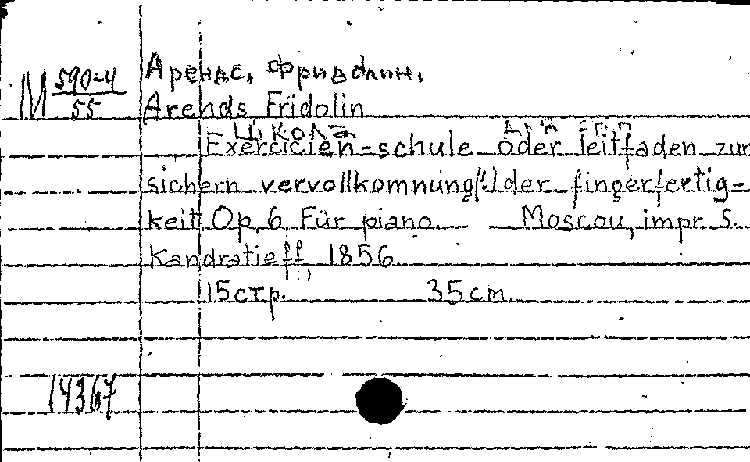 Арендс, Фридолин.
М 590-4
55
Arends Fridolin
Школа
Exercicien-schule oder leitfaden zur
sichern vervollkomnung(!) der fingerfertig-
keit Op. 6 Für piano. Moscou, impr. S.
Kandratieff 1856
15стр. 35cm.
14367